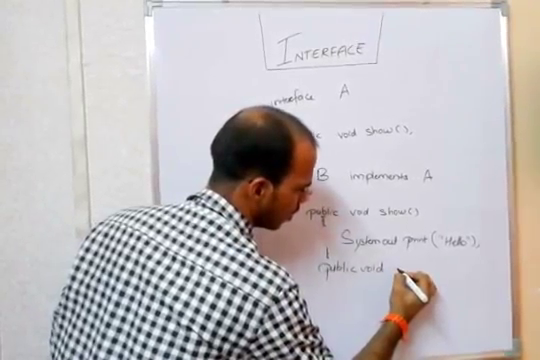 INTERFACE
interface A
void show();
B implements A
public void show()
System.out.print("Hello");
public void